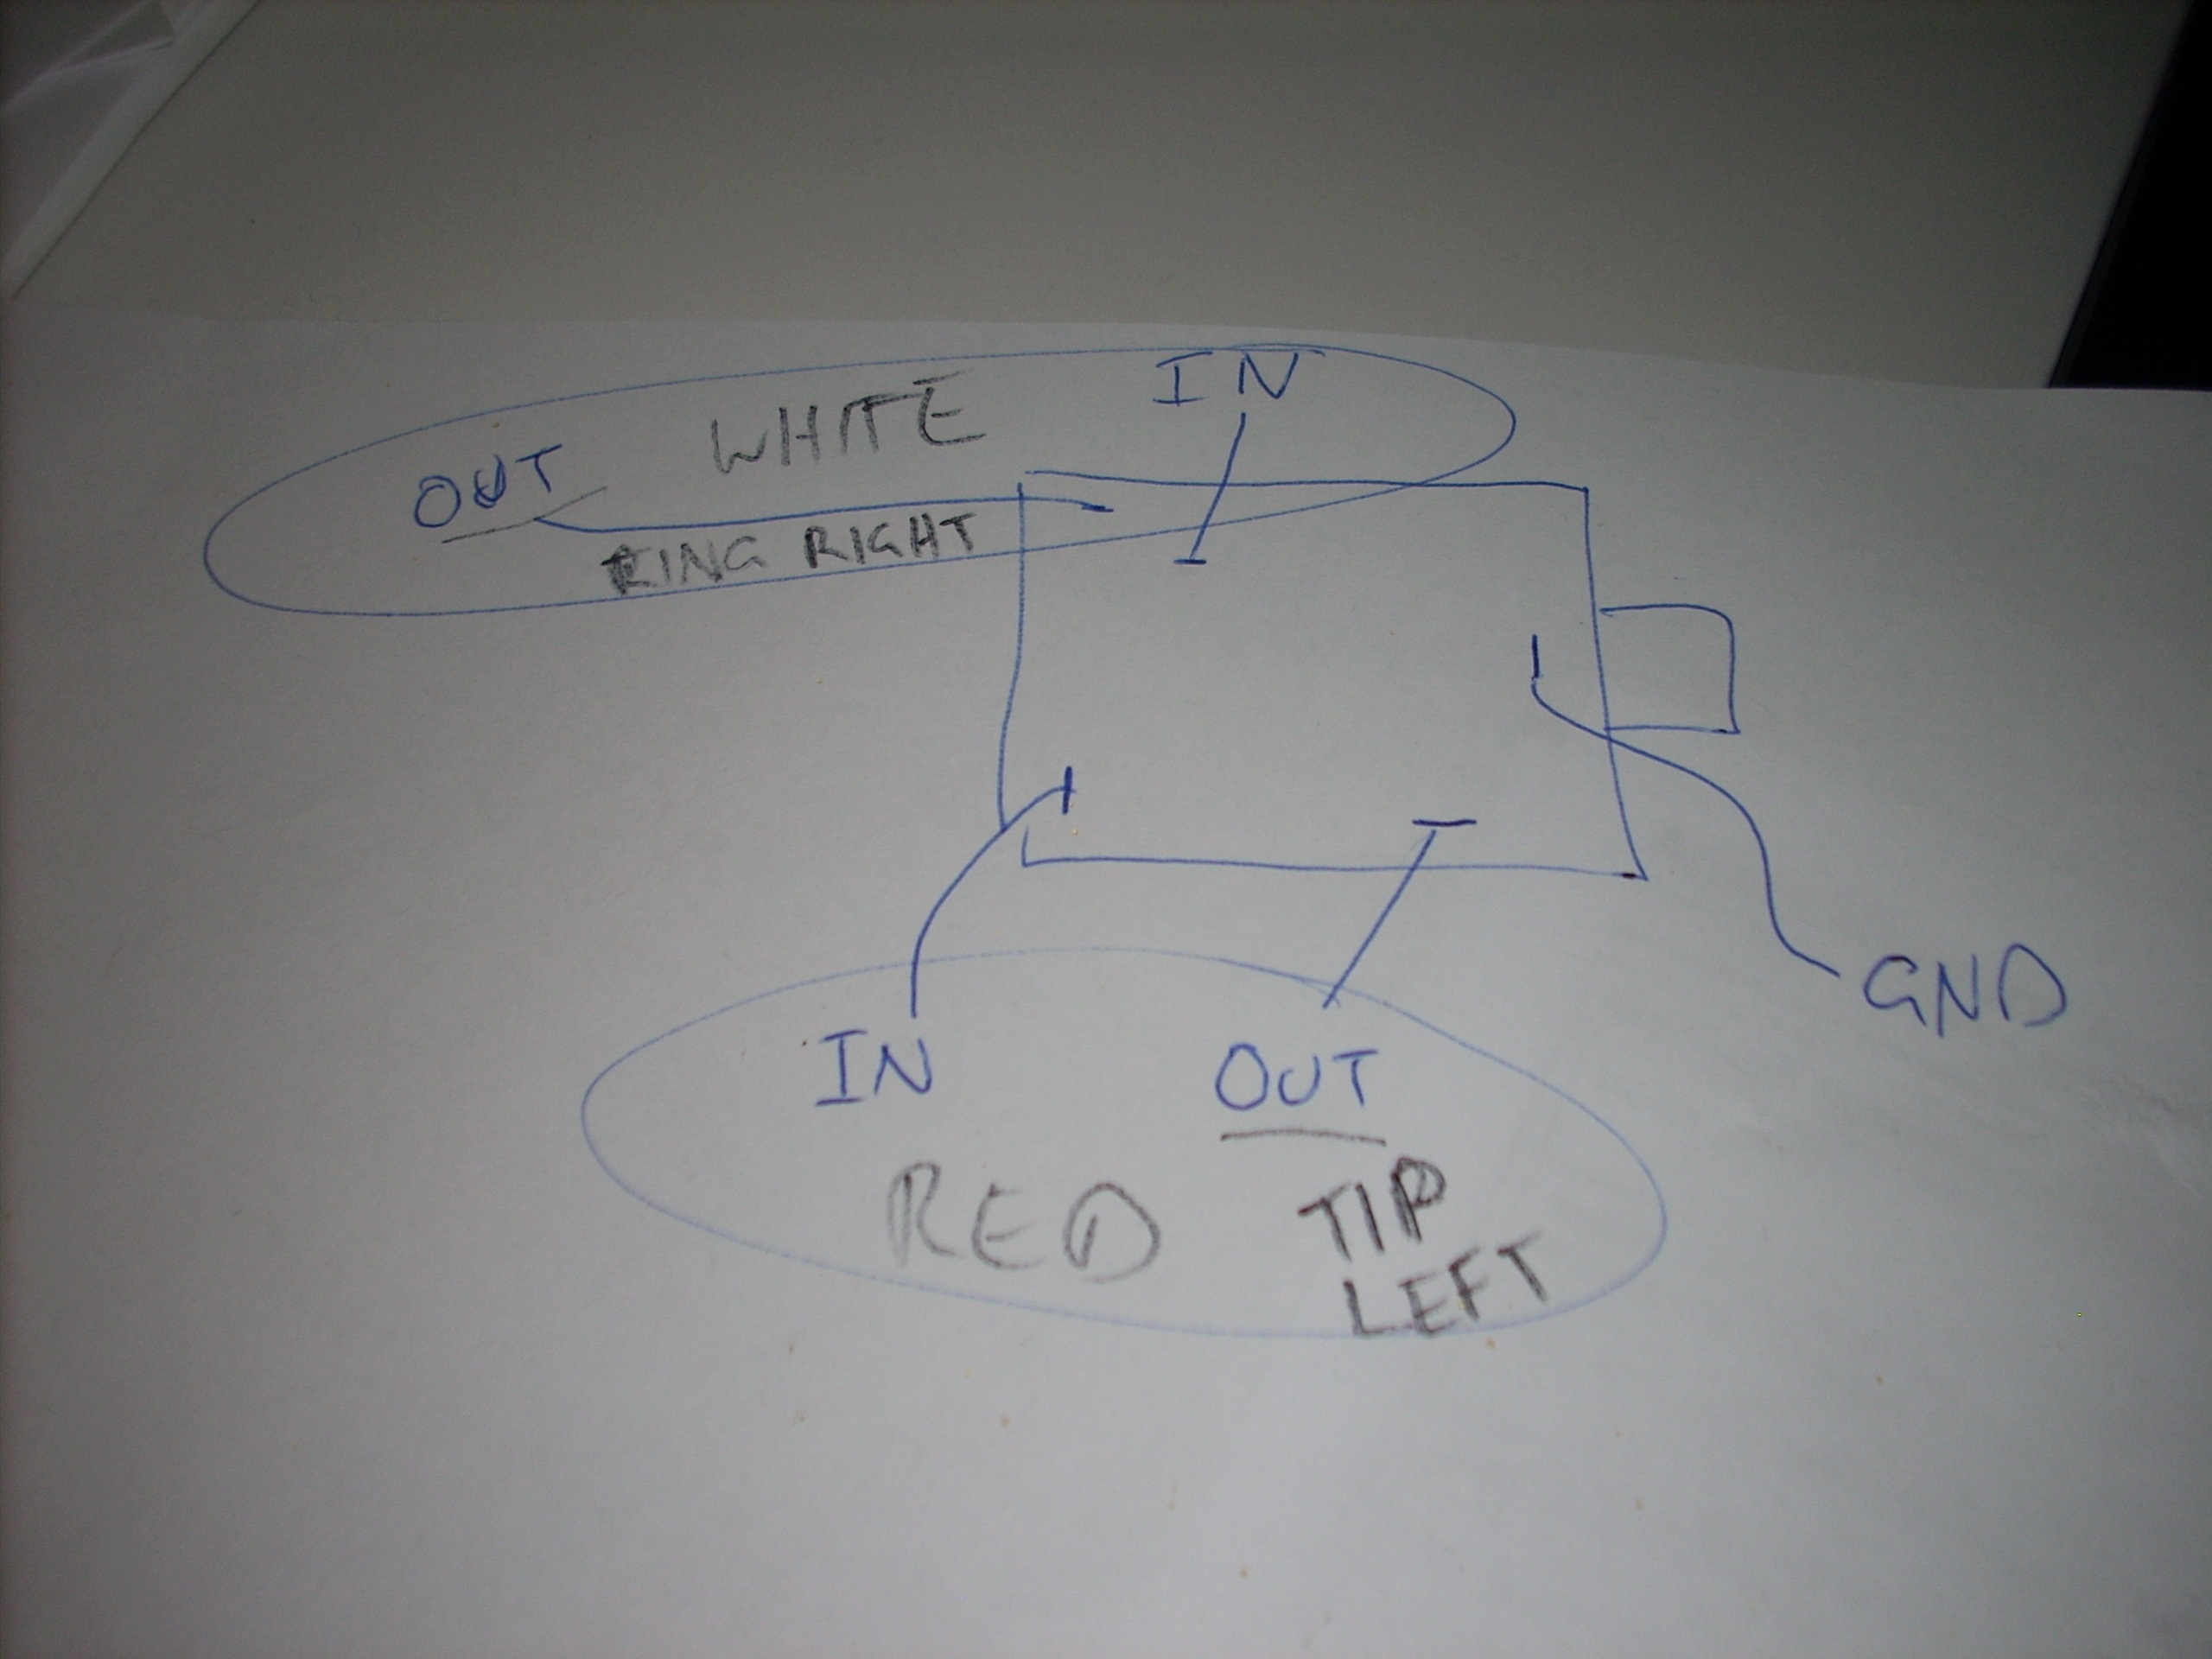 IN
OUT WHITE
RING RIGHT
GND
IN OUT
RED TIP
LEFT